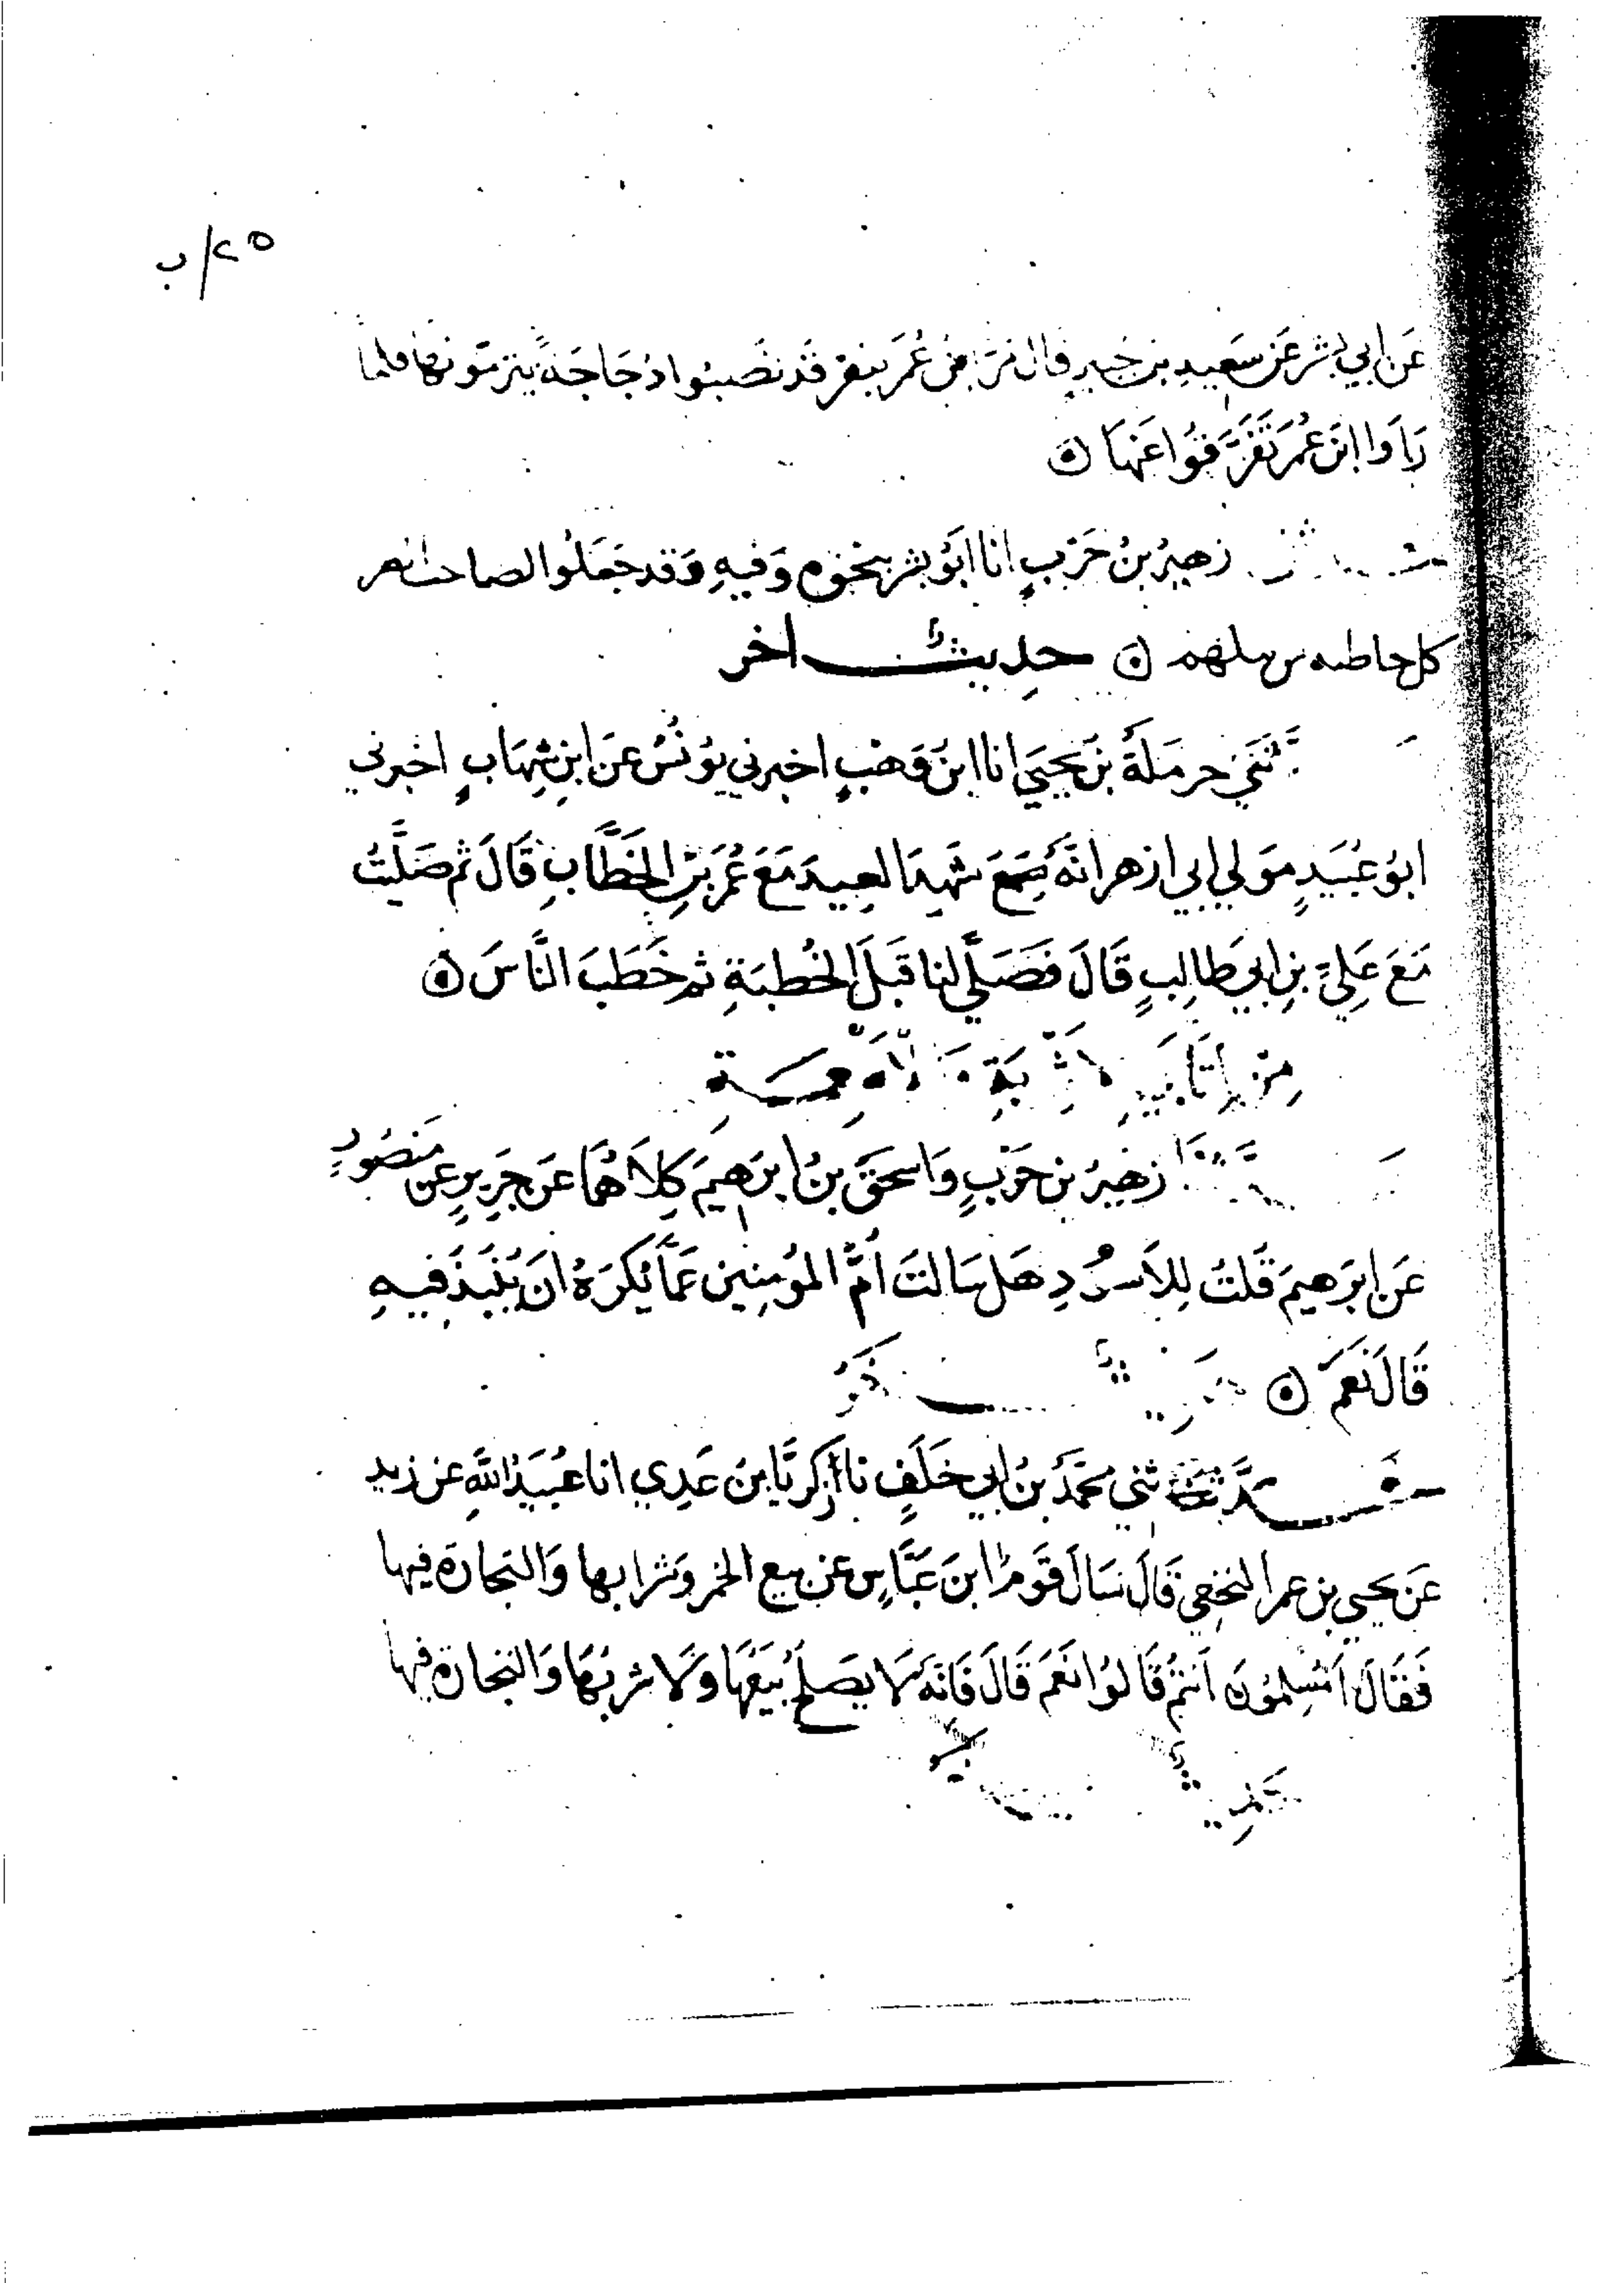 ٢٥/ب
عَن ابي بشر عَن سَعِيدِ بن جُبيرٍ قال مَرَّ ابنُ عُمَرَ بنفرٍ قَد نَصَبُوا دُجَاجَةً يترمّونها فلما
رَاَوا ابنَ عُمَرَ تَفَرَّقُوا عَنهَا
زهيرُ بنُ حَرْبٍ انا ابَوُ بشر بنحوه وَفيهِ وَقد جَعَلُوا لصاحب الطير
كل خاطئه من نبلهم حدِيثٌ اخر
ثَنّي حرمَلةُ بنُ يحيَي انا ابنُ وَهْبٍ اخبرني يوُنُسُ عَن ابنِ شِهَابٍ اخبرني
ابوُ عُبَيدٍ مَولي ابي ازهر انَهُ سَمِعَ شَهِدَ العِيدَ مَعَ عُمَرَ بنِ الخطَّابِ قَالَ ثم صَلَّيتُ
مَعَ عَلِيّ بنِ ابي طالِبٍ قَالَ فَصَلَّي لنا قبَلَ الخُطبَةِ ثم خَطَبَ النَّاسَ
مِن كِتَابِ الاَشرِبَةِ وَالاَطعِمَةِ
زهَيرُ بن حَرْبٍ وَاسحقَ بنُ ابرَهِيمَ كِلاَهُمَا عَن جَرِيرٍ عن مَنصُورٍ
عَن ابرَهيمَ قَلتُ لِلاَسوَدِ هَل سَالتَ اُمَّ المؤمِنِين عَمَّا يُكرَهُ انَ يُنبَذَ فيهِ
قَالَ نَعَم حَدِيثٌ اخَرُ
حَدَّثَنِي ثني محمَّدُ بنُ ابي خَلَفٍ نا زكريَّا بنُ عَدِي انا عُبَيدُ اللهِ عن زيد
عَن يحيي بن عمر النخعِي قَالَ سَالَ قَومٌ ابنَ عَبَّاسٍ عن بيع الخمر وَشرابها وَالتجارَة فيها
فَقَالَ اَمُسلِمُونَ اَنتُم قَالوُا نَعَم قَالَ فَانَّهُ لاَ يصَلحُ بَيعُهَا وَلاَ شربُهَا وَالتجارة فيها
حَدِيثٌ اخَر